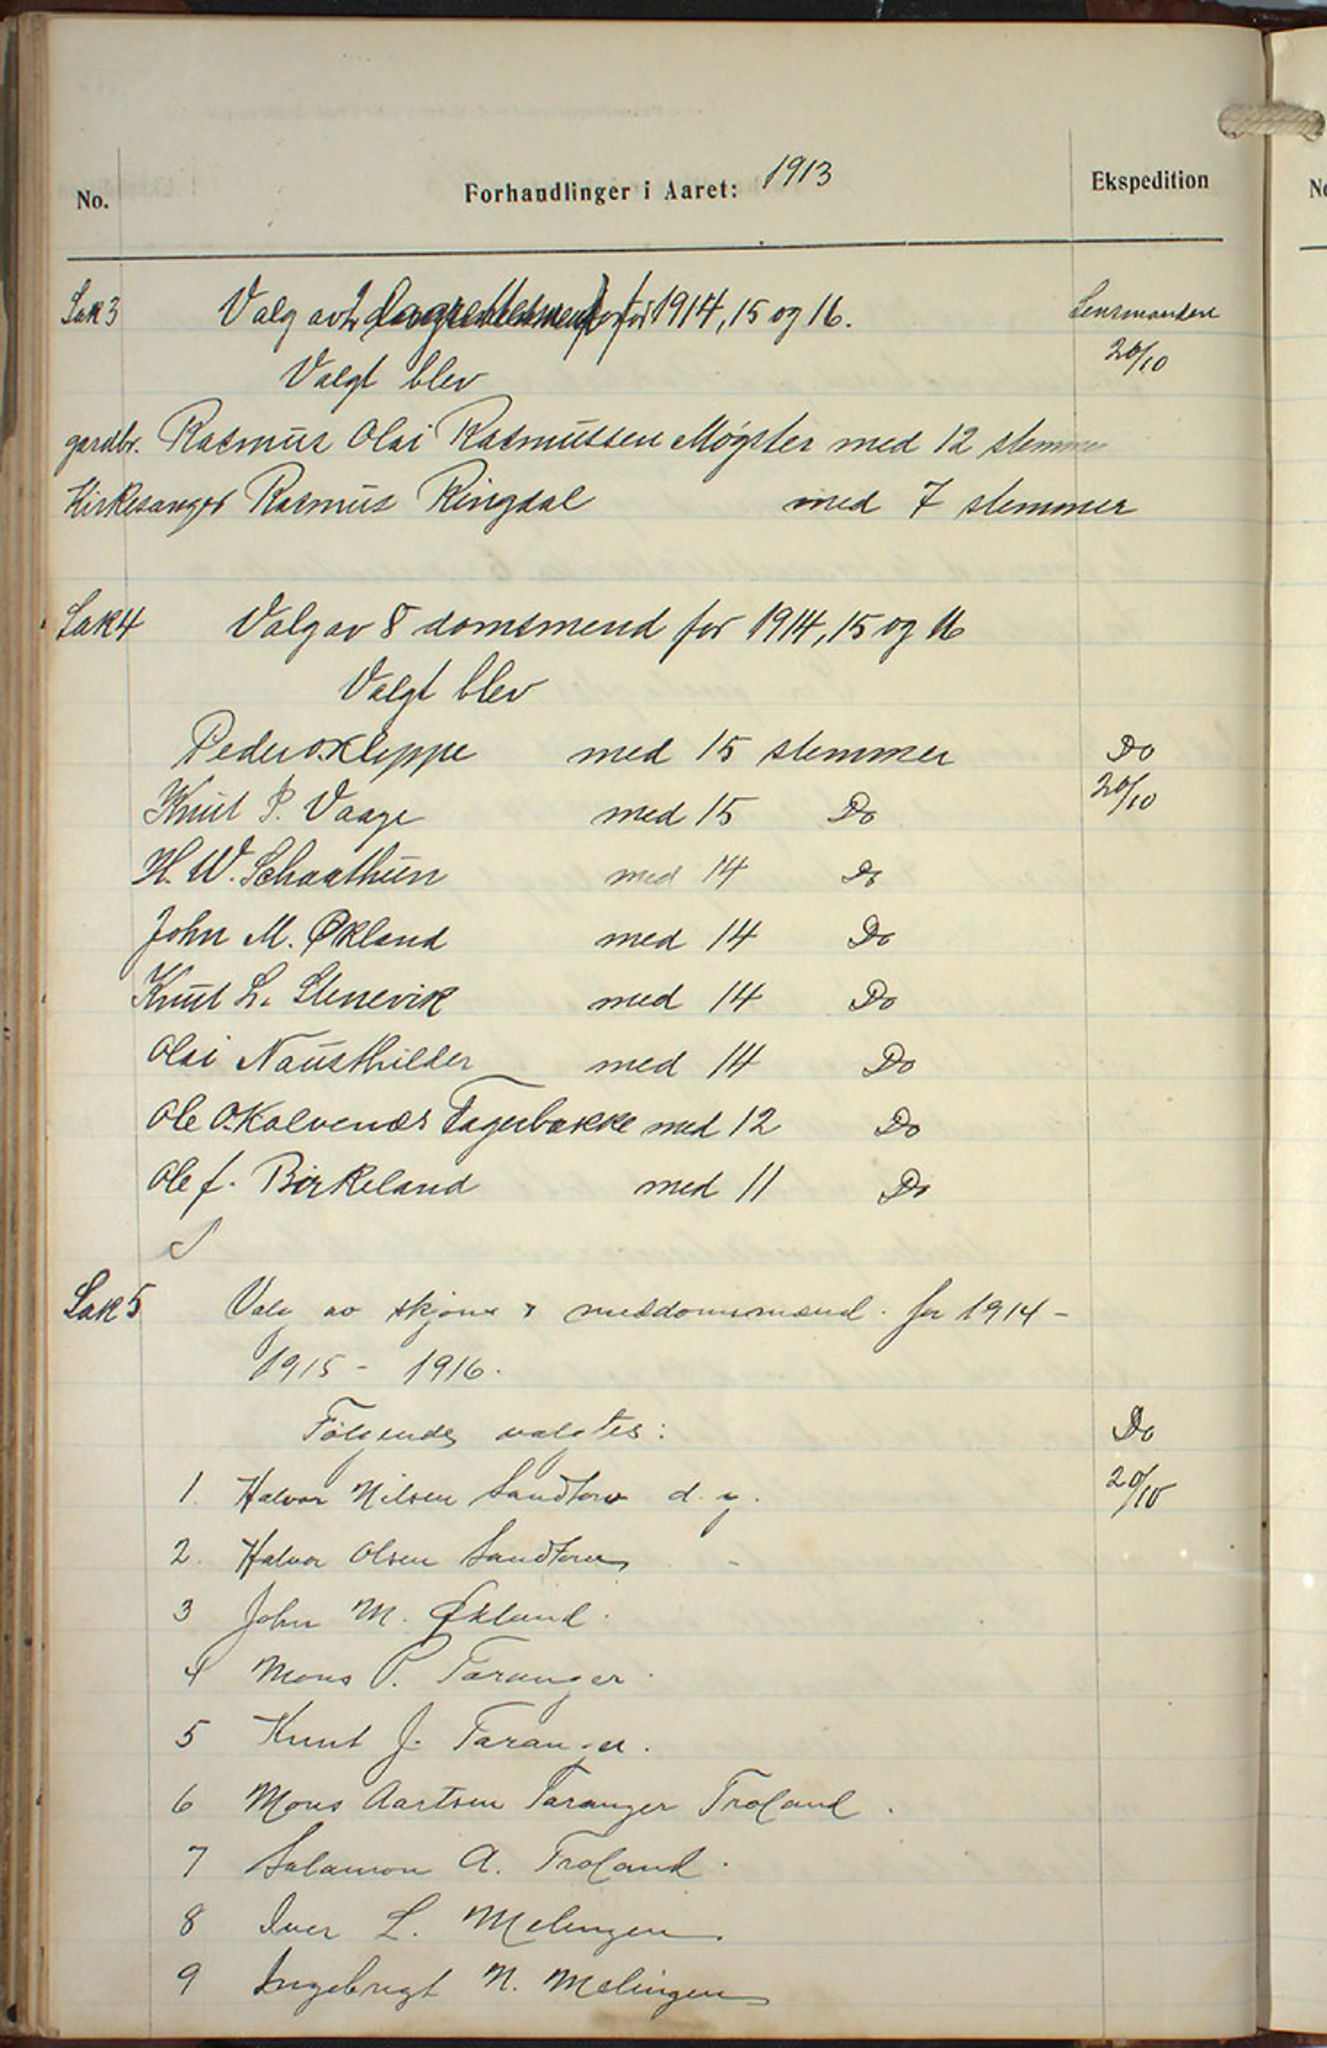 No. Forhandlinger i Aaret: 1913 Ekspedition
No
Sak 3 Valg av 2 Lagrettesmend for 1914, 15 og 16. Lensmanden
Valgt blev 20/10
gardbr. Rasmus Olai Rasmussen Møgster med 12 stemmer
Kirkesanger Rasmus Ringdal med 7 stemmer
Sak 4 Valg av 8 domsmend for 1914, 15 og 16
Valgt blev
Peder O. Kleppe med 15 stemmer Do
Knut P. Vaage med 15 Do 20/10
H. W. Schaathun med 14 Do
John M. Økland med 14 Do
Knut L. Stenevik med 14 Do
Olai Nausthilder med 14 Do
Ole O. Kalvenes Fagerbakke med 12 Do
Ole J. Birkeland med 11 Do
Sak 5 Valg av skjøns & meddomsmænd. for 1914 -
1915 - 1916.
Følgende valgtes: Do
1. Halvor Nilsen Sandtorv d. y. 20/10
2. Halvor Olsen Sandtorv -
3 John M. Økland.
4 Mons P. Taranger.
5 Knut J. Taranger.
6 Mons Aartsen Taranger Troland.
7 Salamon A. Troland.
8 Iver L. Melingen.
9 Ingebrigt N. Melingen